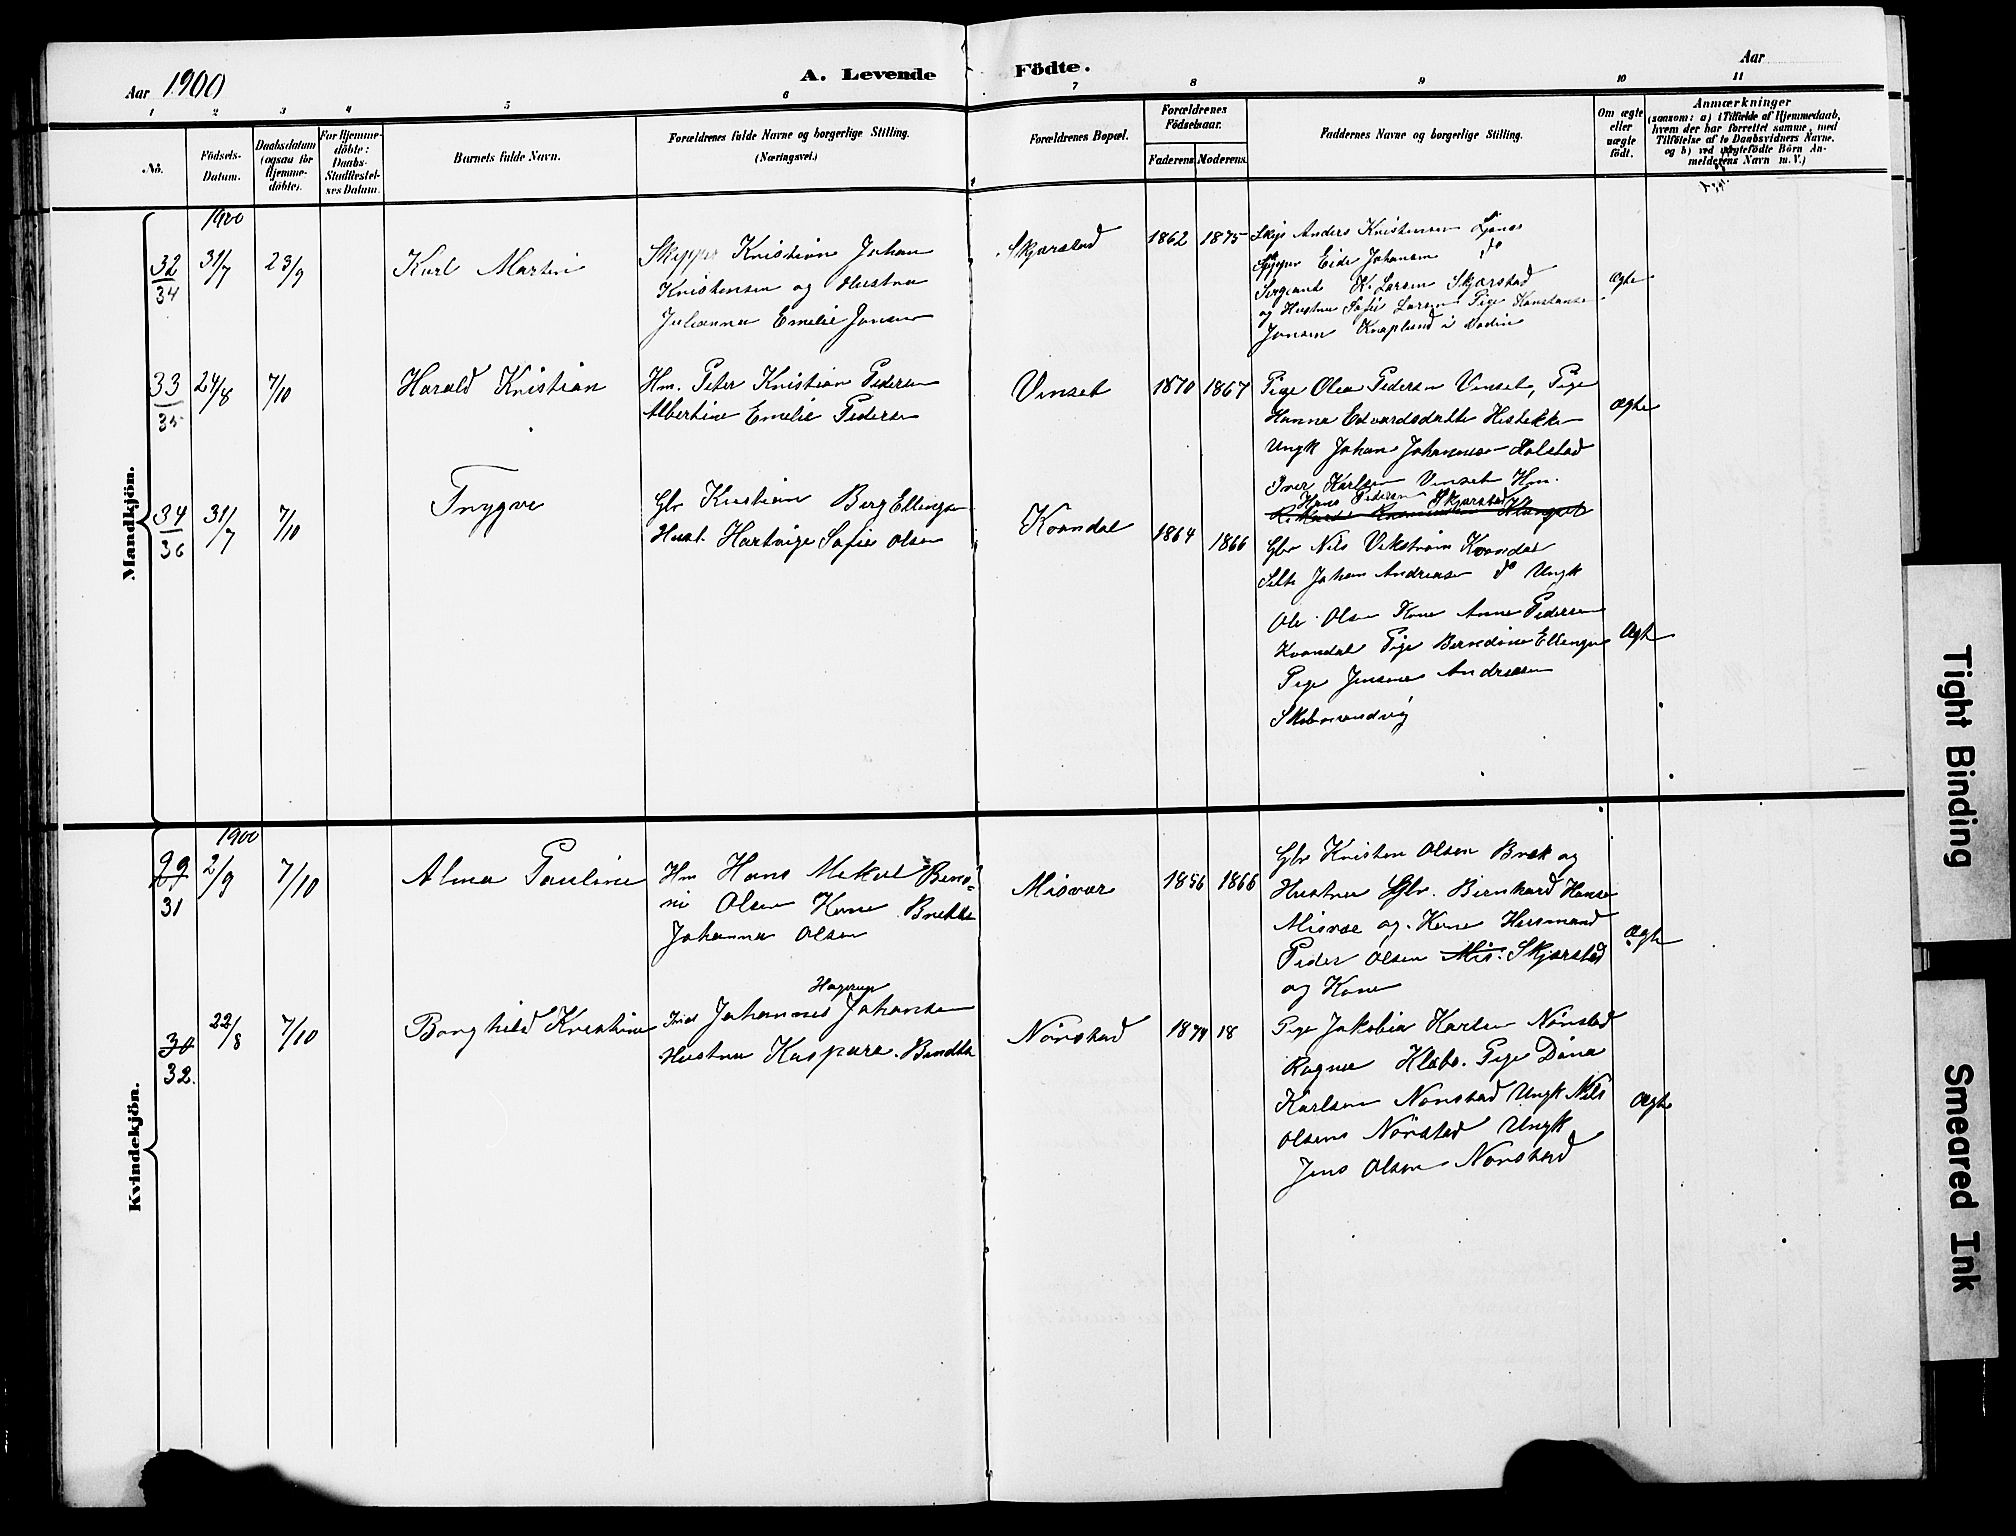 Aar 1900
A. Levende Födte.
Aar
1 2 3 4 5 6 7 8 9 10 11
No.
Födsels-Datum.
Daabsdatum (ogsaa for Hjemme-döbte).
For Hjemme-döbte: Daabs-Stadfæstel-ses Datum.
Barnets fulde Navn.
Forældrenes fulde Navne og borgerlige Stilling.
(Næringsvei.)
Forældrenes Bopæl.
Forældrenes Födselsaar.
Faderens Moderens.
Faddernes Navne og borgerlige Stilling.
Om ægte eller uægte födt.
Anmærkninger
(saasom: a) i Tilfælde af Hjemmedaab,
hvem der har forrettet samme, med
Tilföielse af to Daabsvidners Navne.
og b) ved uægtefödte Börn An-
melderens Navn m. V.)
Mandkjön.
1900
32/34 31/7 23/9 Karl Martin
Skipper Kristian Johan
Kristensen og Hustru
Julianna Emelie Jensen
Skjærstad 1862 1875
Skip Anders Kristensen
Skipper Eide Johansen do
Sergeant K. Larsen Skjærstad
og Hustru Sofie Larsen Pige Konstanse
Jensen Knaplund i Bodin
Ægte
33/35 24/8 7/10 Harald Kristian
Hm. Peter Kristian Pedersen
Albertine Emelie Pedersen
Vinset 1870 1867
Pige Olea Pedersen Vinset, Pige
Hanna Edvardsdatter
Ungk Johan Johannesen
Iver Karlsen Vinset Hm.
Hans Pedersen Skjærstad
Ægte
34/36 31/7 7/10 Trygve
Gbr Kristian Berg Ellingsen
Hust. Hartvige Sofie Olsen
Kvandal 1864 1866
Gbr Nils Vikstrøm Kvandal
Johan Andreasen do Ungk
Ole Olsen Kone Anne Pedersen
Kvandal Pige Berndine Ellingsen
Pige Jensine Andreasen
Ægte
Kvindekjön.
1900
29/31 2/9 7/10 Alma Pauline
Hm Hans Mikal Beno-
ni Olsen Kone
Johanna Olsen
Misvær 1856 1866
Gbr Kristen Olsen Bræk og
Hustru Gbr. Bernhard Hansen
Misvær og Kone Husmand
Peder Olsen Mis. Skjærstad
og Kone
Ægte
30/32. 22/8 7/10 Borghild Kristine
Hagerup
Ind Johannes Johansen
Hustru Kaspara
Nönstad 1874 18
Pige Jakobia Karlsen Nönstad
Ragna Pige Dina
Karlsen Nonstad Ungk Nils
Olsens Nönstad Ungk
Jens Olsen Nonstad
Ægte
Tight Binding
Smeared Ink